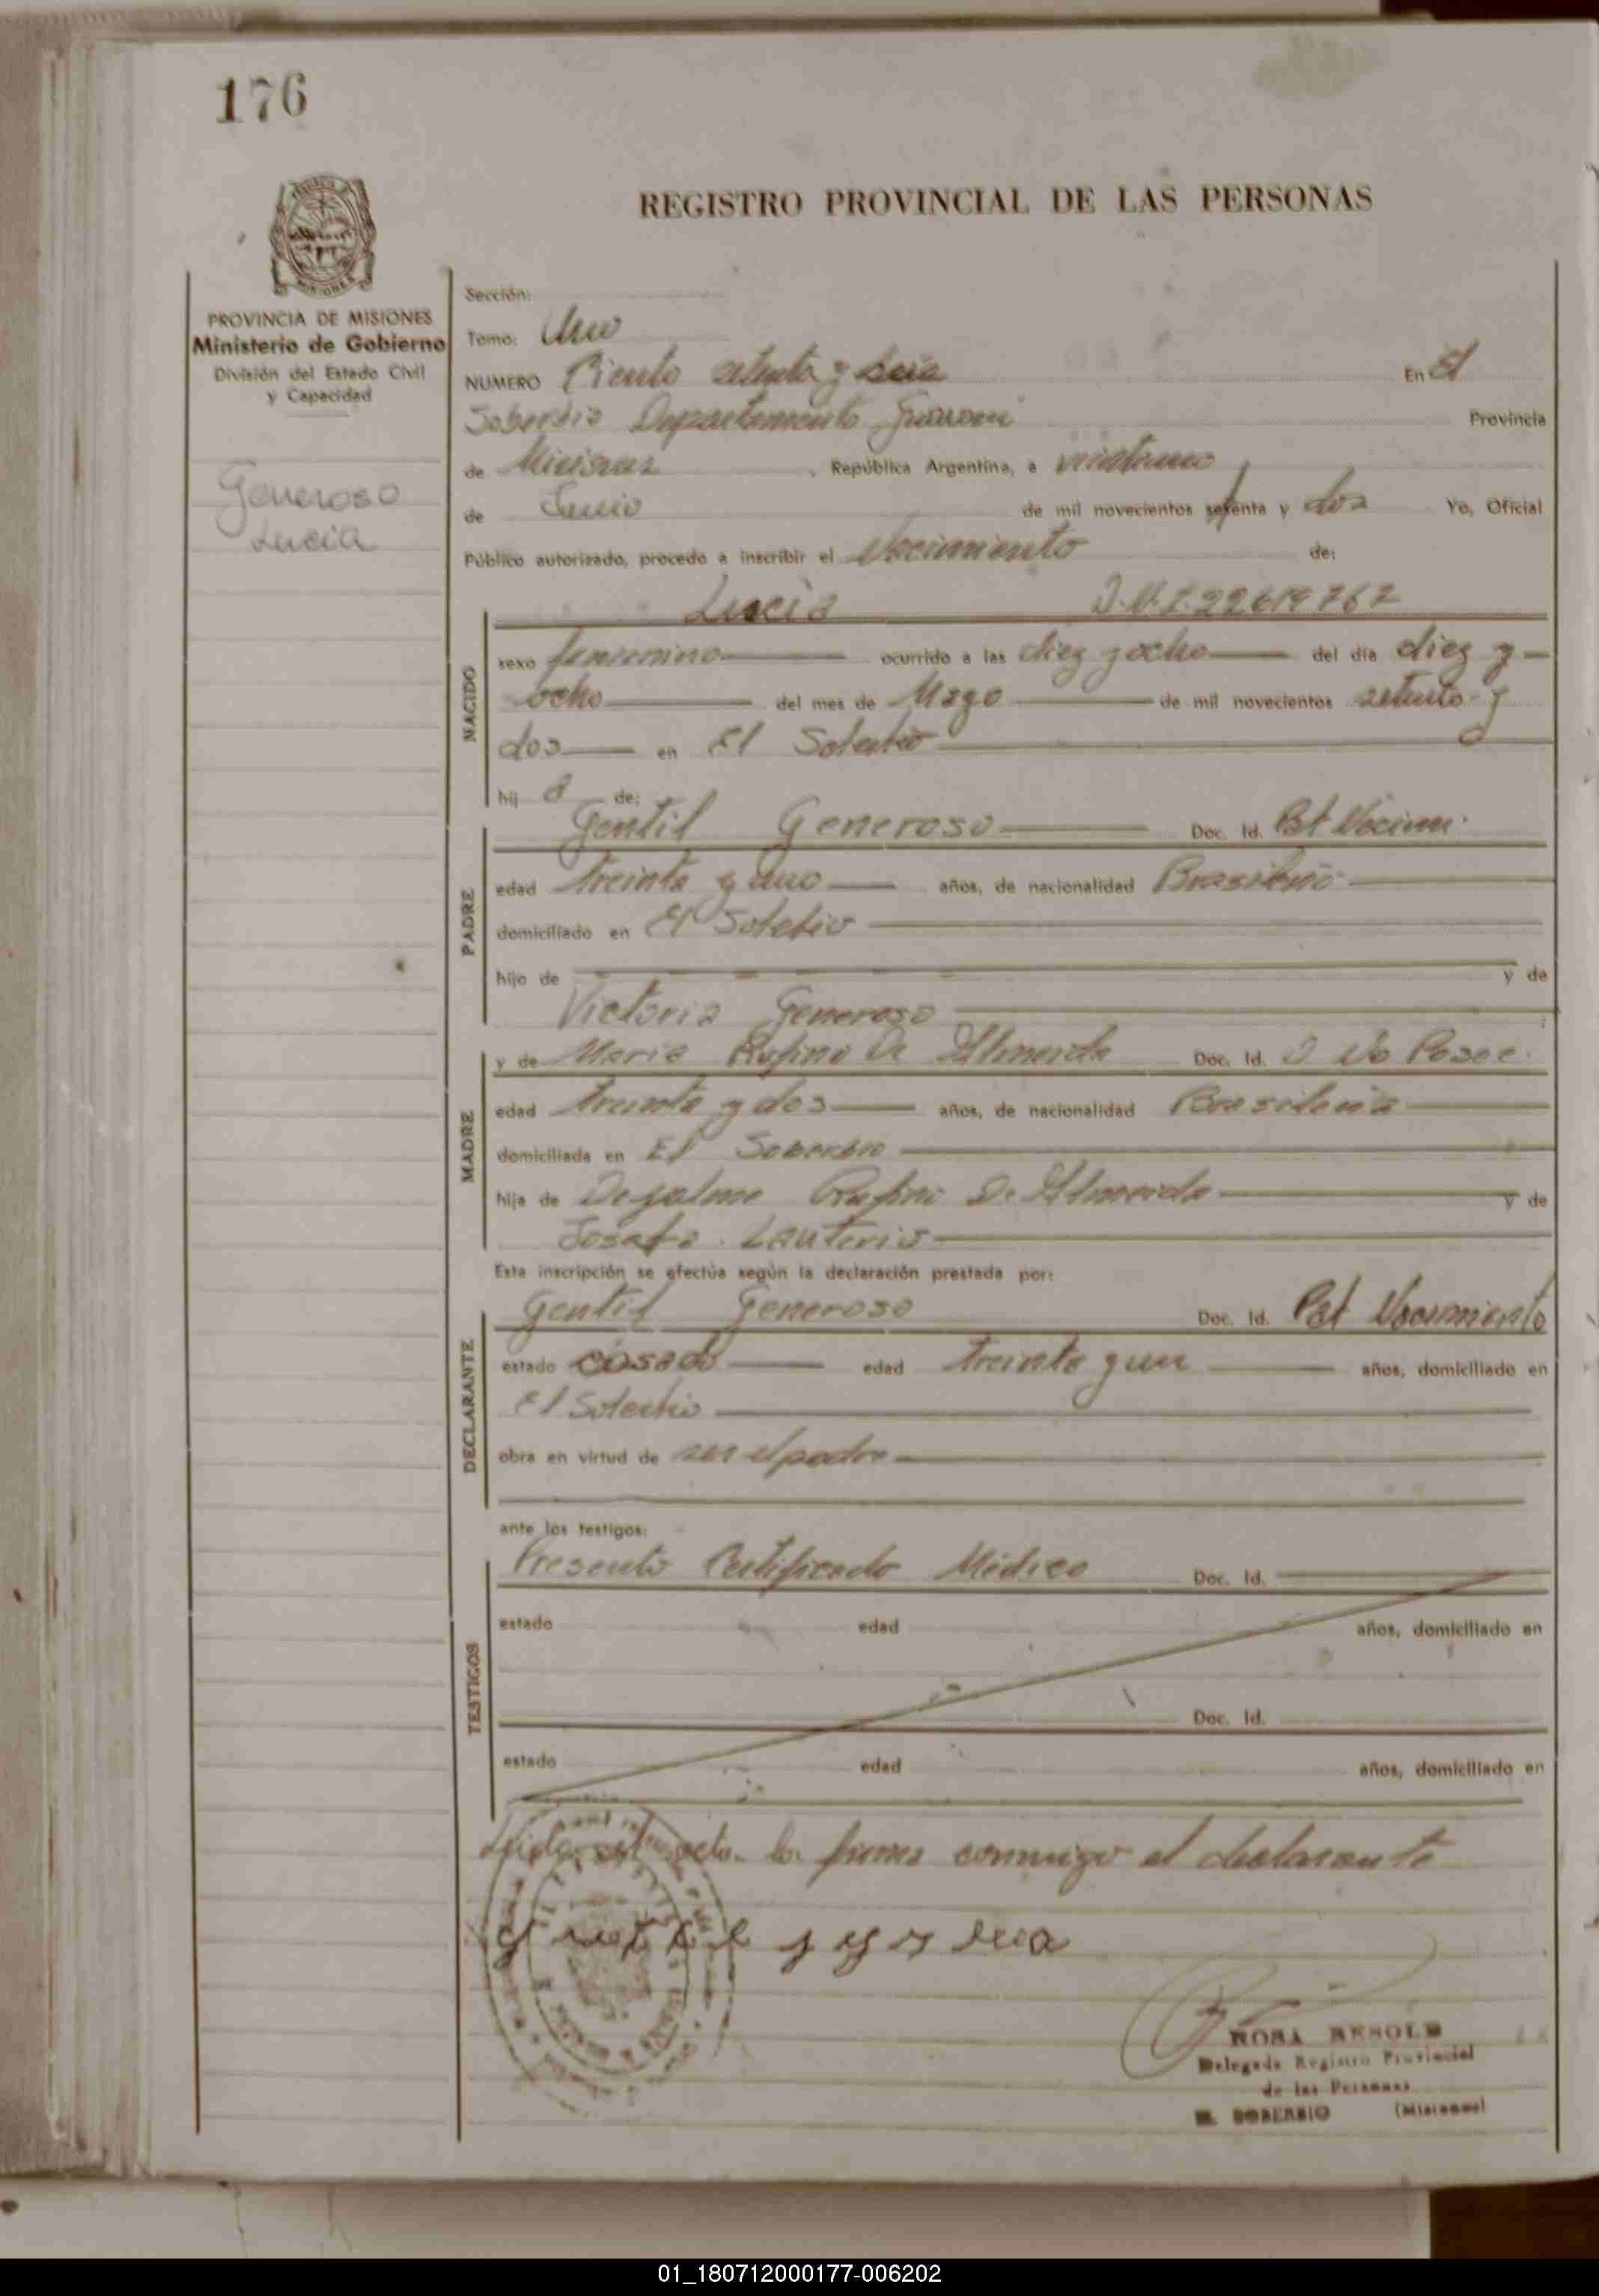 176
REGISTRO PROVINCIAL DE LAS PERSONAS
PROVINCIA DE MISIONES
Ministerio de Gobierno
División del Estado Civil
y Capacidad
Generoso
Lucia
Sección:
Tomo: Uno
NUMERO Ciento setenta y seis En El
Soberbio Departamento Guarani Provincia
de Misiones, República Argentina, a veintiuno
de Junio de mil novecientos setenta y dos Yo, Oficial
Público autorizado, procedo a inscribir el Nacimiento de:
Lucia D.N.I. 22619767
NACIDO
sexo femenino ocurrido a las diez y ocho del día diez y
ocho del mes de Mayo de mil novecientos setenta y
dos en El Soberbio
hij a de:
PADRE
Gentil Generoso Doc. Id. Part Nacim.
edad treinta y uno años, de nacionalidad Brasileño
domiciliado en El Soberbio
hijo de y de
Victoria Generoso
MADRE
y de Maria Rufino De Almeida Doc. Id. No Posee
edad treinta y dos años, de nacionalidad Brasileña
domiciliada en El Soberbio
hija de Dejalme Rufino De Almeida y de
Josefa Lauterio
Esta inscripción se efectúa según la declaración prestada por:
DECLARANTE
Gentil Generoso Doc. Id. Pat Nacimiento
estado casado edad treinta y un años, domiciliado en
El Soberbio
obra en virtud de ser el padre
ante los testigos:
TESTIGOS
Presento Certificado Médico Doc. Id.
estado edad años, domiciliado en
Doc. Id.
estado edad años, domiciliado en
Leida el acta la firma conmigo el declarante
ROSA BESOLD
Delegada Registro Provincial
de las Personas
EL SOBERBIO (Misiones)
01_180712000177-006202